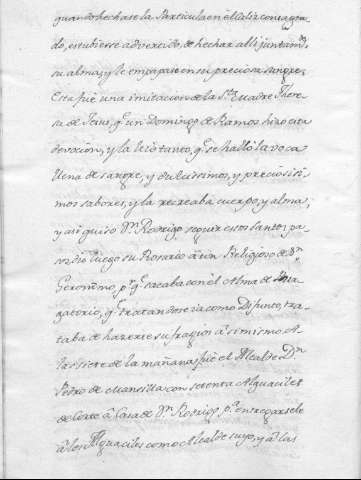 quando hechase la Particula en el Caliz consagra
do, estubiese advertido, de hechar alli juntam.te
su alma, y le empapase en su preciosa sangre,
Esta fué una imitacion de la S.ta Madre There
sa de Jesus, q.e un Domingo de Ramos hizo esta
devoción, y la
tanto, q.e se halló la voca
llena de sangre, y dulcissimos, y preciosisi
mos sabores, y la recreaba cuerpo, y alma;
y asi quiso D.n Rodrigo seguir estos santos pa
sos dió luego su Rosario á un Religioso de S.n
Geronimo, p.a q.e sacaba con él Alma de Pur
gatorio, y q.e tratandose ia como Difunto, tra
taba de hazerse sufragios á si mismo A
las siete de la mañana fué el Alcalde D.n
Pedro de Mansilla con setenta Alguaciles
de Corte á Casa de D.n Rodrigo p.a entregarsele
á los Alguaciles como Alcalde suyo, y á las